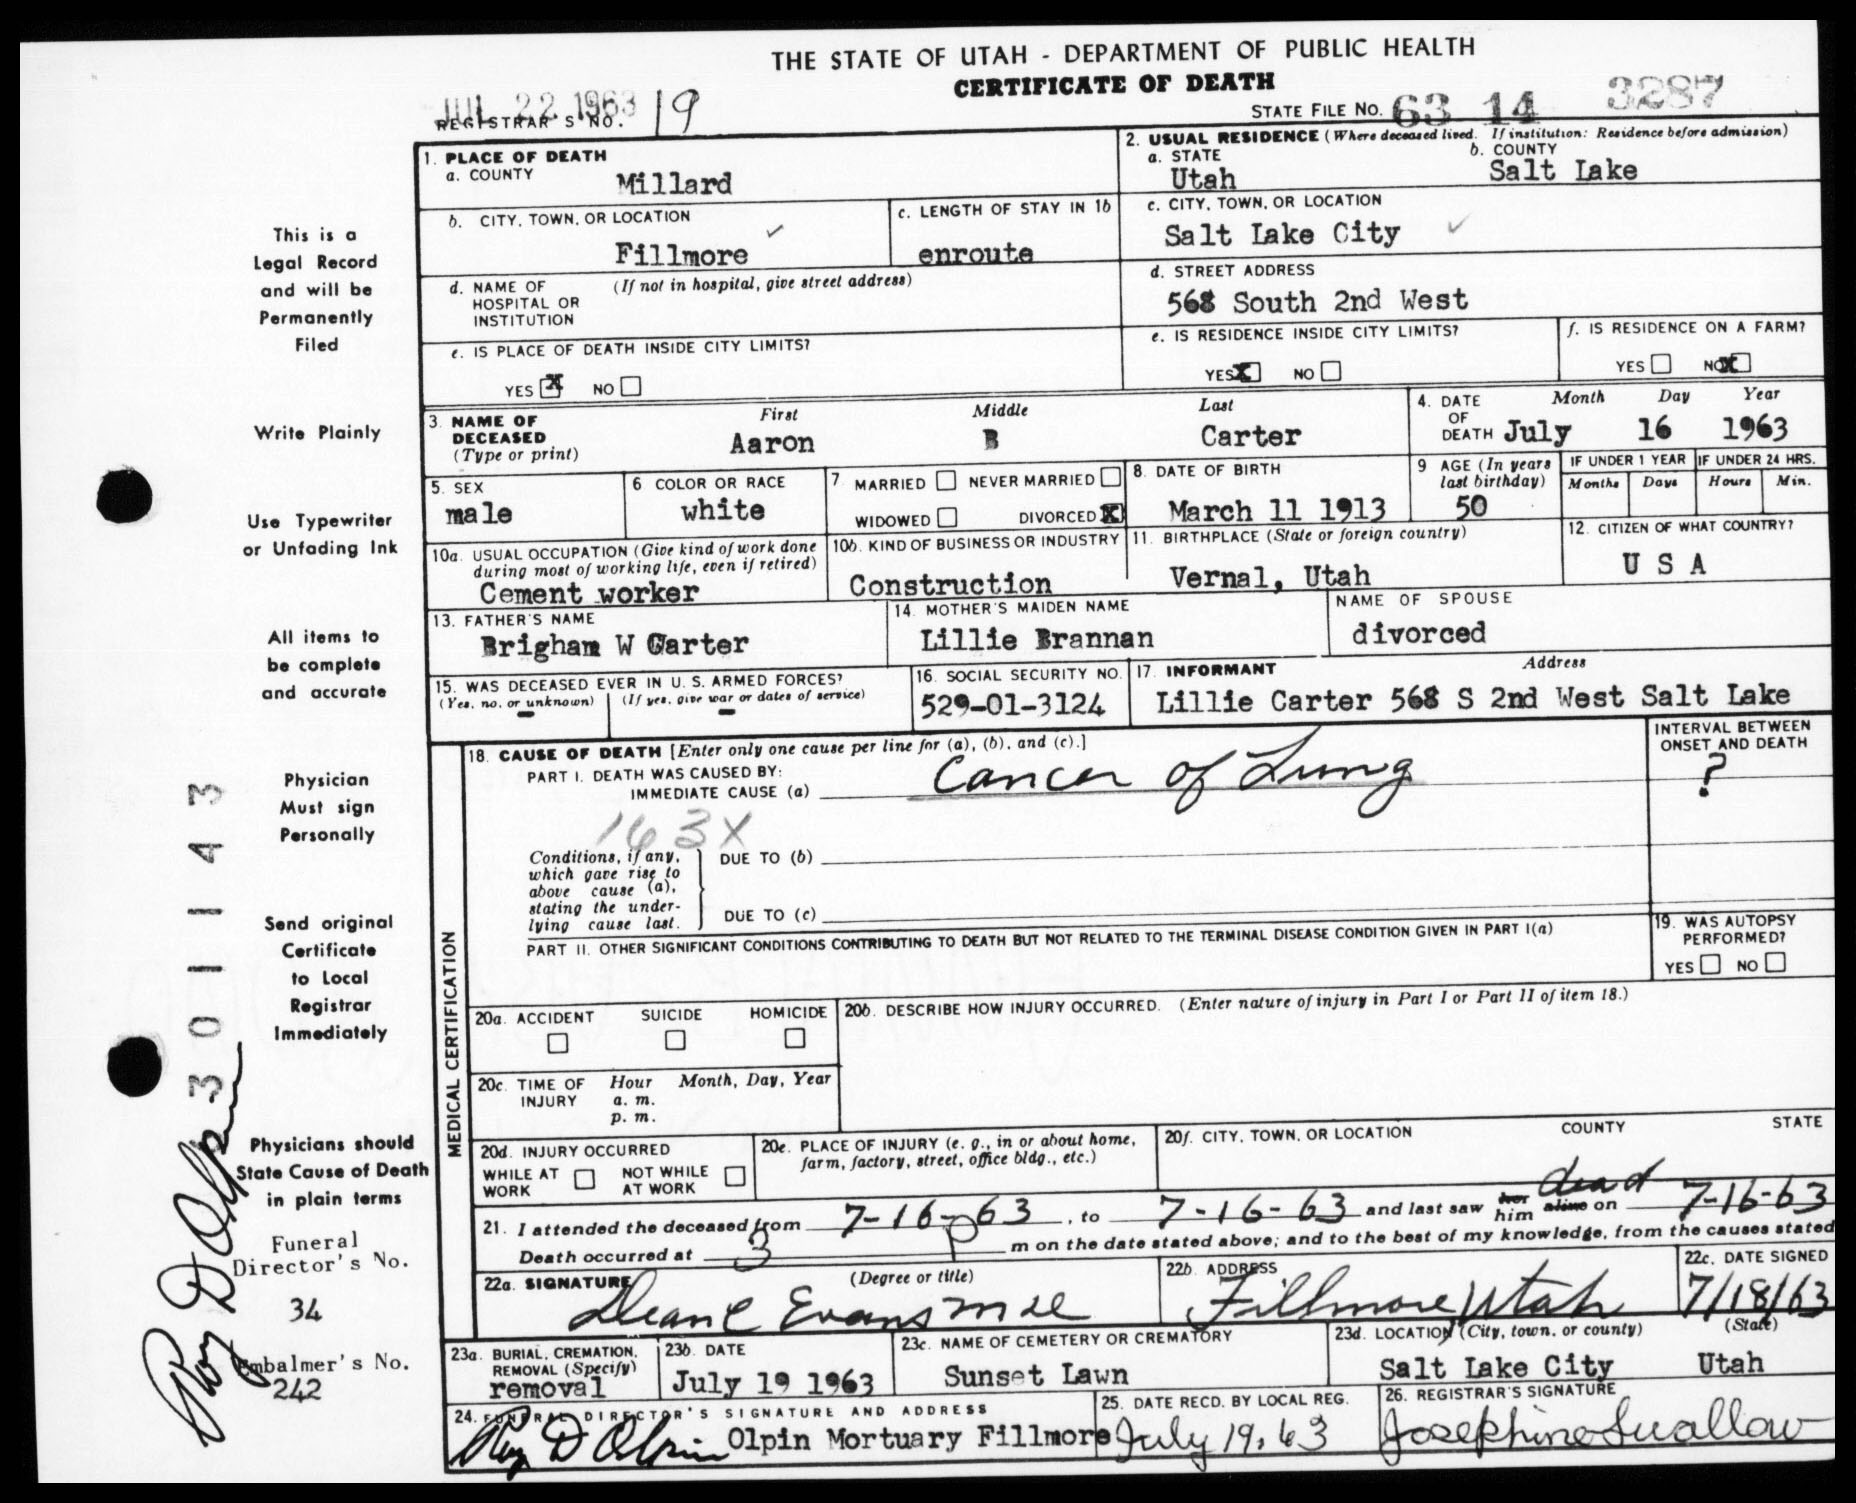 THE STATE OF UTAH - DEPARTMENT OF PUBLIC HEALTH
CERTIFICATE OF DEATH
JUL 22 1963
REGISTRAR'S NO. 19
STATE FILE NO. 63 14 3287
1. PLACE OF DEATH
a. COUNTY
Millard
2. USUAL RESIDENCE (Where deceased lived. If institution: Residence before admission)
a. STATE
Utah
b. COUNTY
Salt Lake
b. CITY, TOWN, OR LOCATION
Fillmore ✓
c. LENGTH OF STAY IN 1b
enroute
c. CITY, TOWN, OR LOCATION
Salt Lake City ✓
d. NAME OF HOSPITAL OR INSTITUTION
(If not in hospital, give street address)
d. STREET ADDRESS
568 South 2nd West
e. IS PLACE OF DEATH INSIDE CITY LIMITS?
YES X NO
e. IS RESIDENCE INSIDE CITY LIMITS?
YES X NO
f. IS RESIDENCE ON A FARM?
YES NO X
3. NAME OF DECEASED (Type or print)
First Middle Last
Aaron B Carter
4. DATE OF DEATH
Month Day Year
July 16 1963
5. SEX
male
6 COLOR OR RACE
white
7 MARRIED NEVER MARRIED
WIDOWED DIVORCED X
8. DATE OF BIRTH
March 11 1913
9 AGE (In years last birthday)
50
IF UNDER 1 YEAR
Months Days
IF UNDER 24 HRS.
Hours Min.
10a. USUAL OCCUPATION (Give kind of work done during most of working life, even if retired)
Cement worker
10b. KIND OF BUSINESS OR INDUSTRY
Construction
11. BIRTHPLACE (State or foreign country)
Vernal, Utah
12. CITIZEN OF WHAT COUNTRY?
U S A
13. FATHER'S NAME
Brigham W Carter
14. MOTHER'S MAIDEN NAME
Lillie Brannan
NAME OF SPOUSE
divorced
15. WAS DECEASED EVER IN U. S. ARMED FORCES?
(Yes, no, or unknown) (If yes, give war or dates of service)
- -
16. SOCIAL SECURITY NO.
529-01-3124
17. INFORMANT Address
Lillie Carter 568 S 2nd West Salt Lake
18. CAUSE OF DEATH [Enter only one cause per line for (a), (b), and (c).]
PART I. DEATH WAS CAUSED BY:
IMMEDIATE CAUSE (a) Cancer of Lung
INTERVAL BETWEEN ONSET AND DEATH
?
163X
Conditions, if any, which gave rise to above cause (a), stating the underlying cause last.
DUE TO (b)
DUE TO (c)
PART II. OTHER SIGNIFICANT CONDITIONS CONTRIBUTING TO DEATH BUT NOT RELATED TO THE TERMINAL DISEASE CONDITION GIVEN IN PART I(a)
19. WAS AUTOPSY PERFORMED?
YES NO
MEDICAL CERTIFICATION
20a. ACCIDENT SUICIDE HOMICIDE
20b. DESCRIBE HOW INJURY OCCURRED. (Enter nature of injury in Part I or Part II of item 18.)
20c. TIME OF INJURY
Hour Month, Day, Year
a. m.
p. m.
20d. INJURY OCCURRED
WHILE AT WORK NOT WHILE AT WORK
20e. PLACE OF INJURY (e. g., in or about home, farm, factory, street, office bldg., etc.)
20f. CITY, TOWN, OR LOCATION COUNTY STATE
21. I attended the deceased from 7-16-63, to 7-16-63 and last saw her him alive dead on 7-16-63
Death occurred at 3 p m on the date stated above; and to the best of my knowledge, from the causes stated
22a. SIGNATURE (Degree or title)
Dean C Evans MD
22b. ADDRESS
Fillmore, Utah
22c. DATE SIGNED
7/18/63
23a. BURIAL, CREMATION, REMOVAL (Specify)
removal
23b. DATE
July 19 1963
23c. NAME OF CEMETERY OR CREMATORY
Sunset Lawn
23d. LOCATION (City, town, or county) (State)
Salt Lake City Utah
24. FUNERAL DIRECTOR'S SIGNATURE AND ADDRESS
Roy D Olpin Olpin Mortuary Fillmore
25. DATE RECD. BY LOCAL REG.
July 19, 63
26. REGISTRAR'S SIGNATURE
Josephine Swallow
This is a
Legal Record
and will be
Permanently
Filed
Write Plainly
Use Typewriter
or Unfading Ink
All items to
be complete
and accurate
Physician
Must sign
Personally
Send original
Certificate
to Local
Registrar
Immediately
Physicians should
State Cause of Death
in plain terms
Funeral
Director's No.
34
Embalmer's No.
242
Roy D Olpin
301143